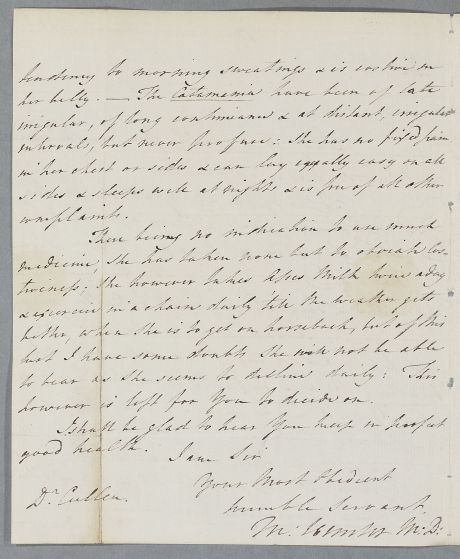 tendency to morning sweatings & is costive in
her belly. — The Catamenia have been of late
irregular, of long continuance & at distant, irregular
intervals, but never profuse: She has no fixed pain
in her chest or sides & can lay equally easy on all
sides & sleeps well at nights & is free of all other
complaints.
There being no indication to use much
medicine, She has taken none but to obviate Cos-
tiveness; She however takes Asses Milk twice a day
& exercise in a chain daily till the weather gets
better, when She is to get on horseback, but of this
last I have some doubts She will not be able
to bear as She seems to decline daily: This
however is left for You to decide on.
I shall be glad to hear You keep in perfect
good health.
I am Sir
Your Most Obedient
humble Servant,
Dr. Cullen.
M: D: